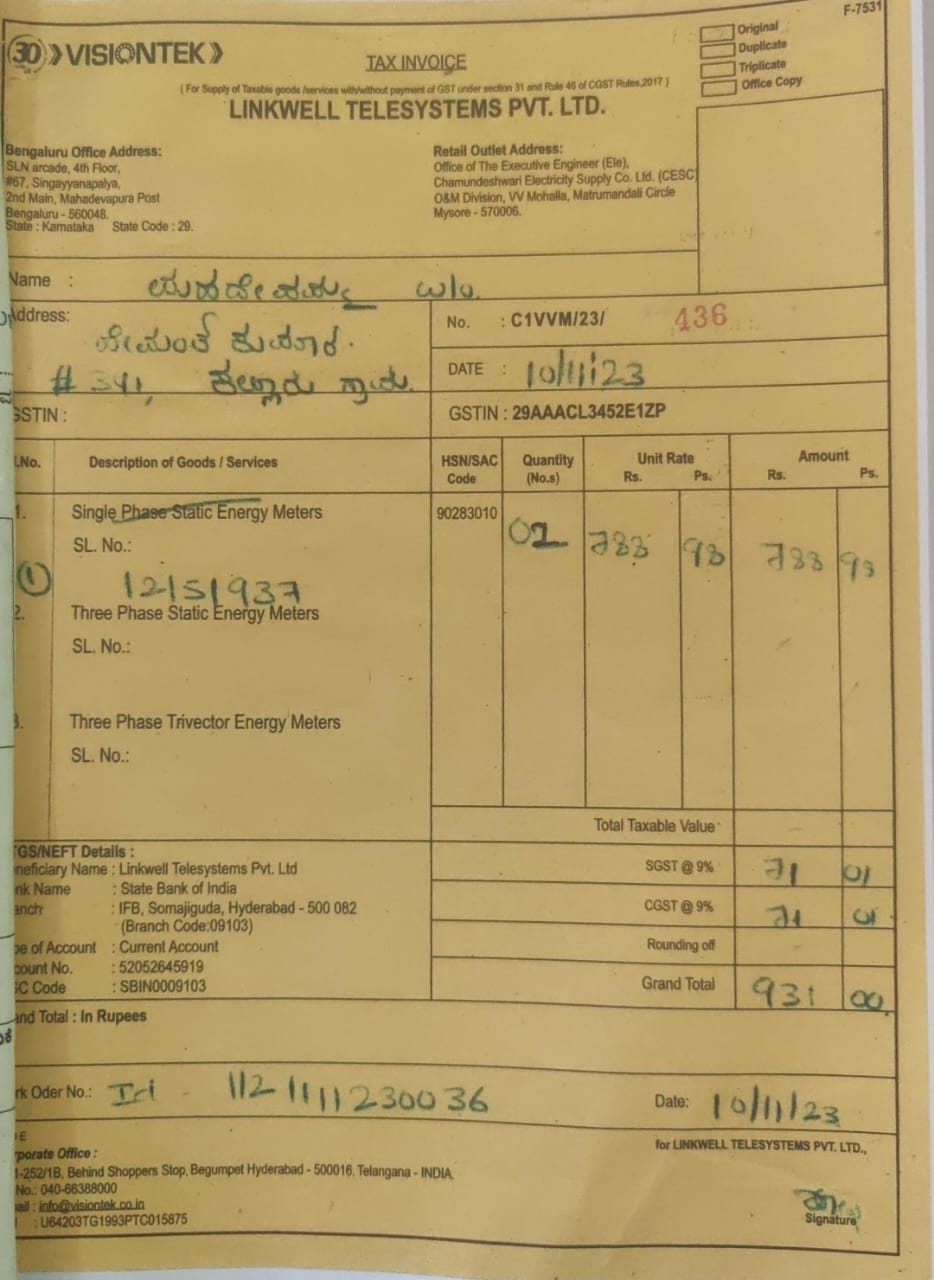 F-7531
30 VISIONTEK
TAX INVOICE
Original
Duplicate
Triplicate
Office Copy
( For Supply of Taxable goods /services with/without payment of GST under section 31 and Rule 46 of CGST Rules,2017 )
LINKWELL TELESYSTEMS PVT. LTD.
Bengaluru Office Address:
SLN arcade, 4th Floor,
#67, Singayyanapalya,
2nd Main, Mahadevapura Post
Bengaluru - 560048.
State : Karnataka State Code : 29.
Retail Outlet Address:
Office of The Executive Engineer (Ele),
Chamundeshwari Electricity Supply Co. Ltd. (CESC)
O&M Division, VV Mohalla, Matrumandali Circle
Mysore - 570006.
Name : ಮಹದೇವಮ್ಮ w/o.
Address:
ಹೇಮಂತ್ ಕುಮಾರ.
# 341, ಗ್ರಾಮ.
No. : C1VVM/23/ 436
DATE : 10/11/23
GSTIN :
GSTIN : 29AAACL3452E1ZP
.No. Description of Goods / Services HSN/SAC Code Quantity (No.s) Unit Rate Rs. Ps. Amount Rs. Ps.
1. Single Phase Static Energy Meters 90283010 01 788 98 788 98
SL. No.:
① 12151937
2. Three Phase Static Energy Meters
SL. No.:
3. Three Phase Trivector Energy Meters
SL. No.:
Total Taxable Value
SGST @ 9% 71 01
CGST @ 9% 71 01
Rounding off
Grand Total 931 00
TGS/NEFT Details :
neficiary Name : Linkwell Telesystems Pvt. Ltd
nk Name : State Bank of India
anch : IFB, Somajiguda, Hyderabad - 500 082
(Branch Code:09103)
pe of Account : Current Account
count No. : 52052645919
SC Code : SBIN0009103
and Total : In Rupees
rk Oder No.: Id - 11211111230036
Date: 10/11/23
for LINKWELL TELESYSTEMS PVT. LTD.,
rporate Office :
1-252/1B, Behind Shoppers Stop, Begumpet Hyderabad - 500016, Telangana - INDIA,
No.: 040-66388000
ail : info@visiontek.co.in
: U64203TG1993PTC015875
Signature